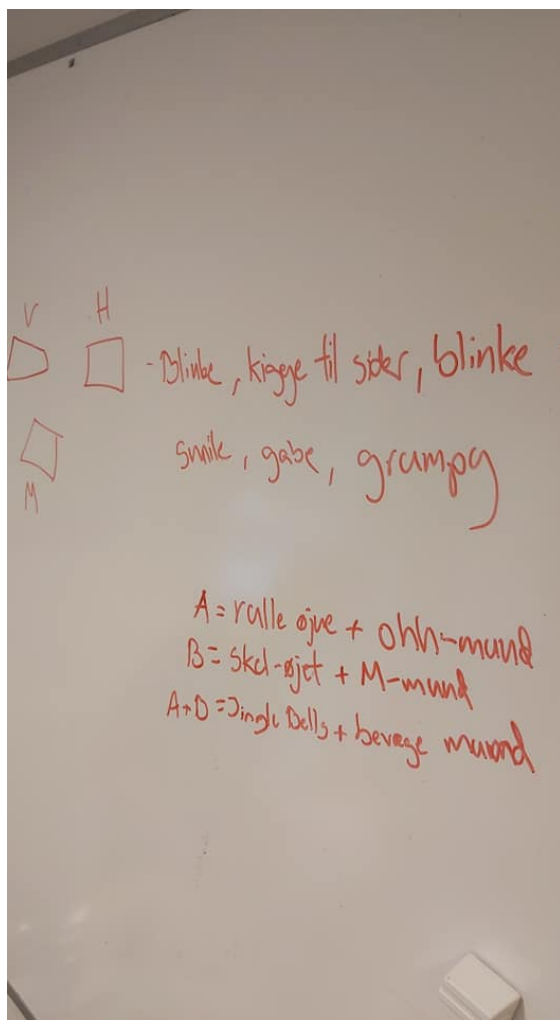 V H
-Blinke, kigge til sider, blinke
smile, gabe, grumpy
M
A = rulle øjne + ohh-mund
B = Skel-øjet + M-mund
A+B = Jingle Bells + bevæge mund